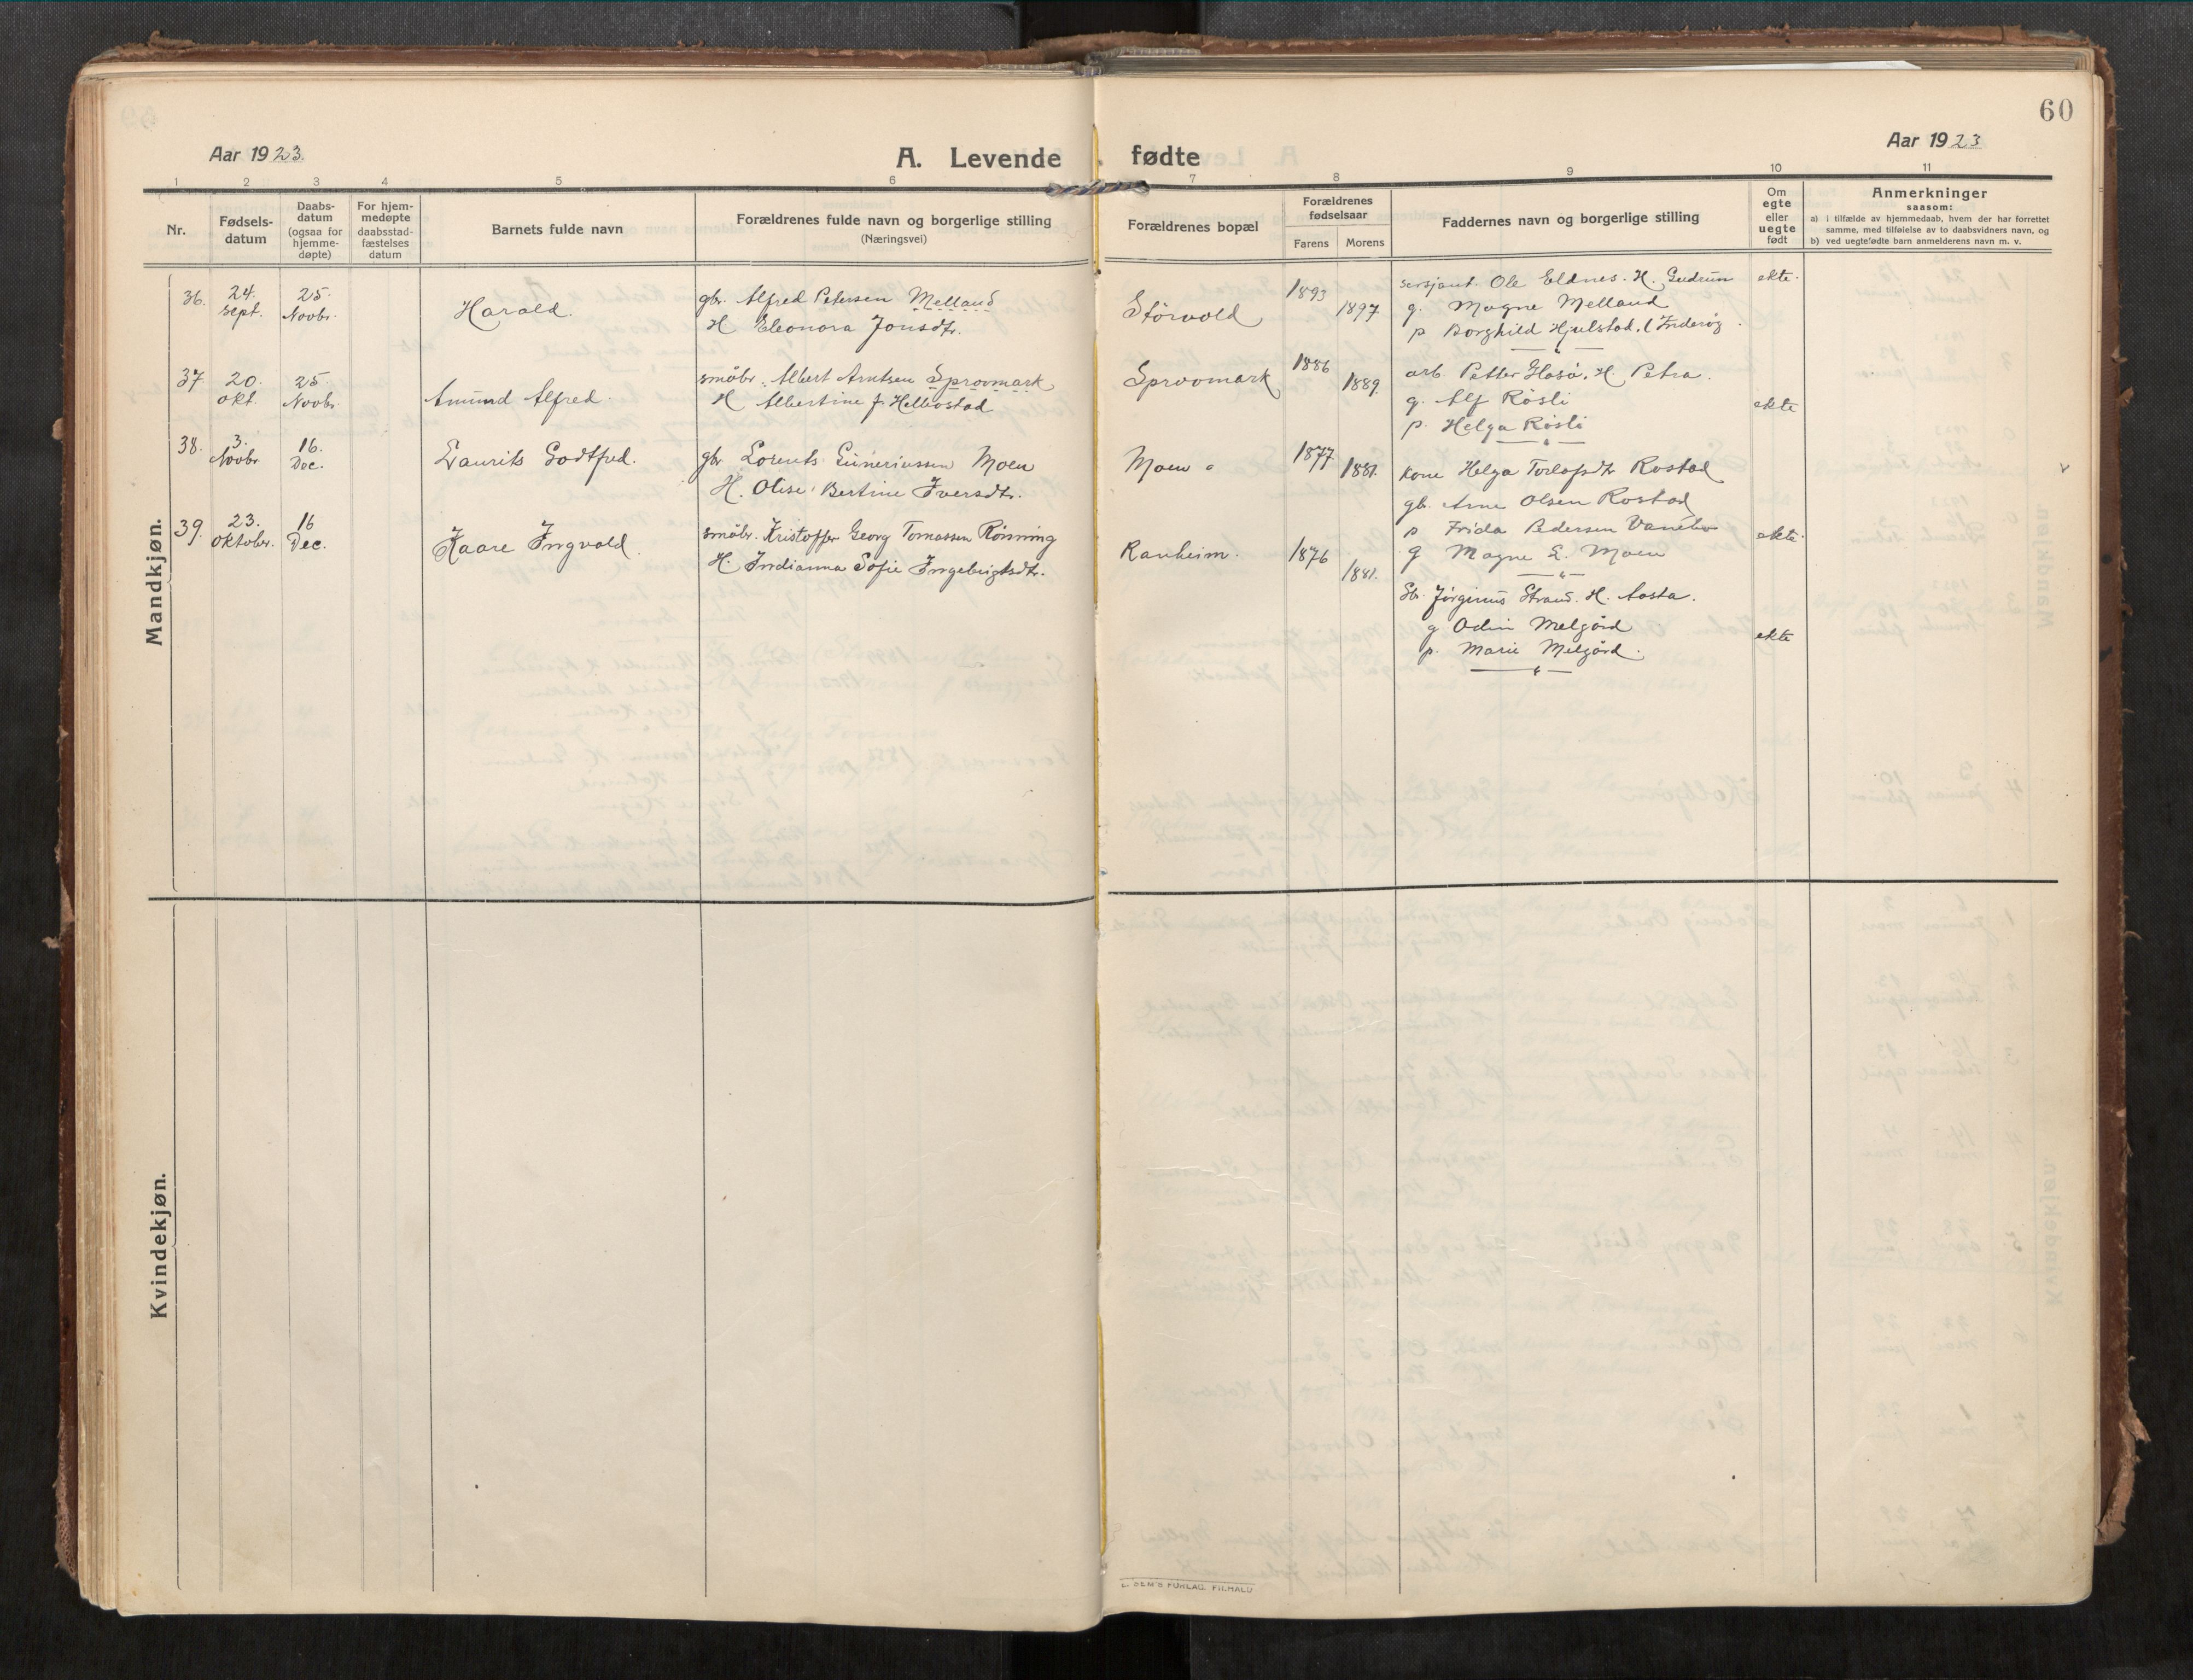 60
Aar 1923.
A. Levende
fødte
Aar 1923
1 2 3 4 5 6 7 8 9 10 11
Nr.
Fødsels-
datum
Daabs-
datum
(ogsaa for
hjemme-
døpte)
For hjem-
medøpte
daabsstad-
fæstelses
datum
Barnets fulde navn
Forældrenes fulde navn og borgerlige stilling
(Næringsvei)
Forældrenes bopæl
Forældrenes
fødselsaar
Farens Morens
Faddernes navn og borgerlige stilling
Om
egte
eller
uegte
født
Anmerkninger
saasom:
a) i tilfælde av hjemmedaab, hvem der har forrettet
samme, med tilføielse av to daabsvidners navn, og
b) ved uegtefødte barn anmelderens navn m. v.
Mandkjøn.
36.
24.
sept.
25.
Novbr.
Harald.
gbr. Alfred Petersen Melland
H Eleonora Jonsdtr.
Störvold
1893
1897
sersjant Ole Eldnes. H. Gudrun
g. Magne Melland
p Borghild Hjulstad. (Inderøy.
ekte.
37
20.
okt.
25.
Novbr.
Amund Alfred.
småbr. Albert Arntsen Sprovmark
H Albertine f Helbostad
Sprovmark
1886
1889.
arb. Petter Hasö. H. Petra.
g. Alf Røsli
p. Helga Røsli
ekte
38.
3.
Novbr
16.
Dec.
Laurits Godtfred.
gbr Lorents Guneriussen Moen
H. Olise Bertine Iversdtr.
Moen
1877
1881.
kone Helga Torlofsdtr Rostad
gb. Arne Olsen Rostad
p Frida Pedersen
g Magne L. Moen
ekte.
39.
23.
oktober.
16
Dec.
Kaare Ingvald.
småbr. Kristoffer Georg Tomassen Rönning
H. Indianna Sofie Ingebrigtsdtr.
Ranheim.
1876
1881.
Gbr. Jörginus Strand. H. Aasta.
g Odin Melgård
p. Marie Melgård.
ekte
Kvindekjøn.
E. SEM'S FORLAG, FR.HALD